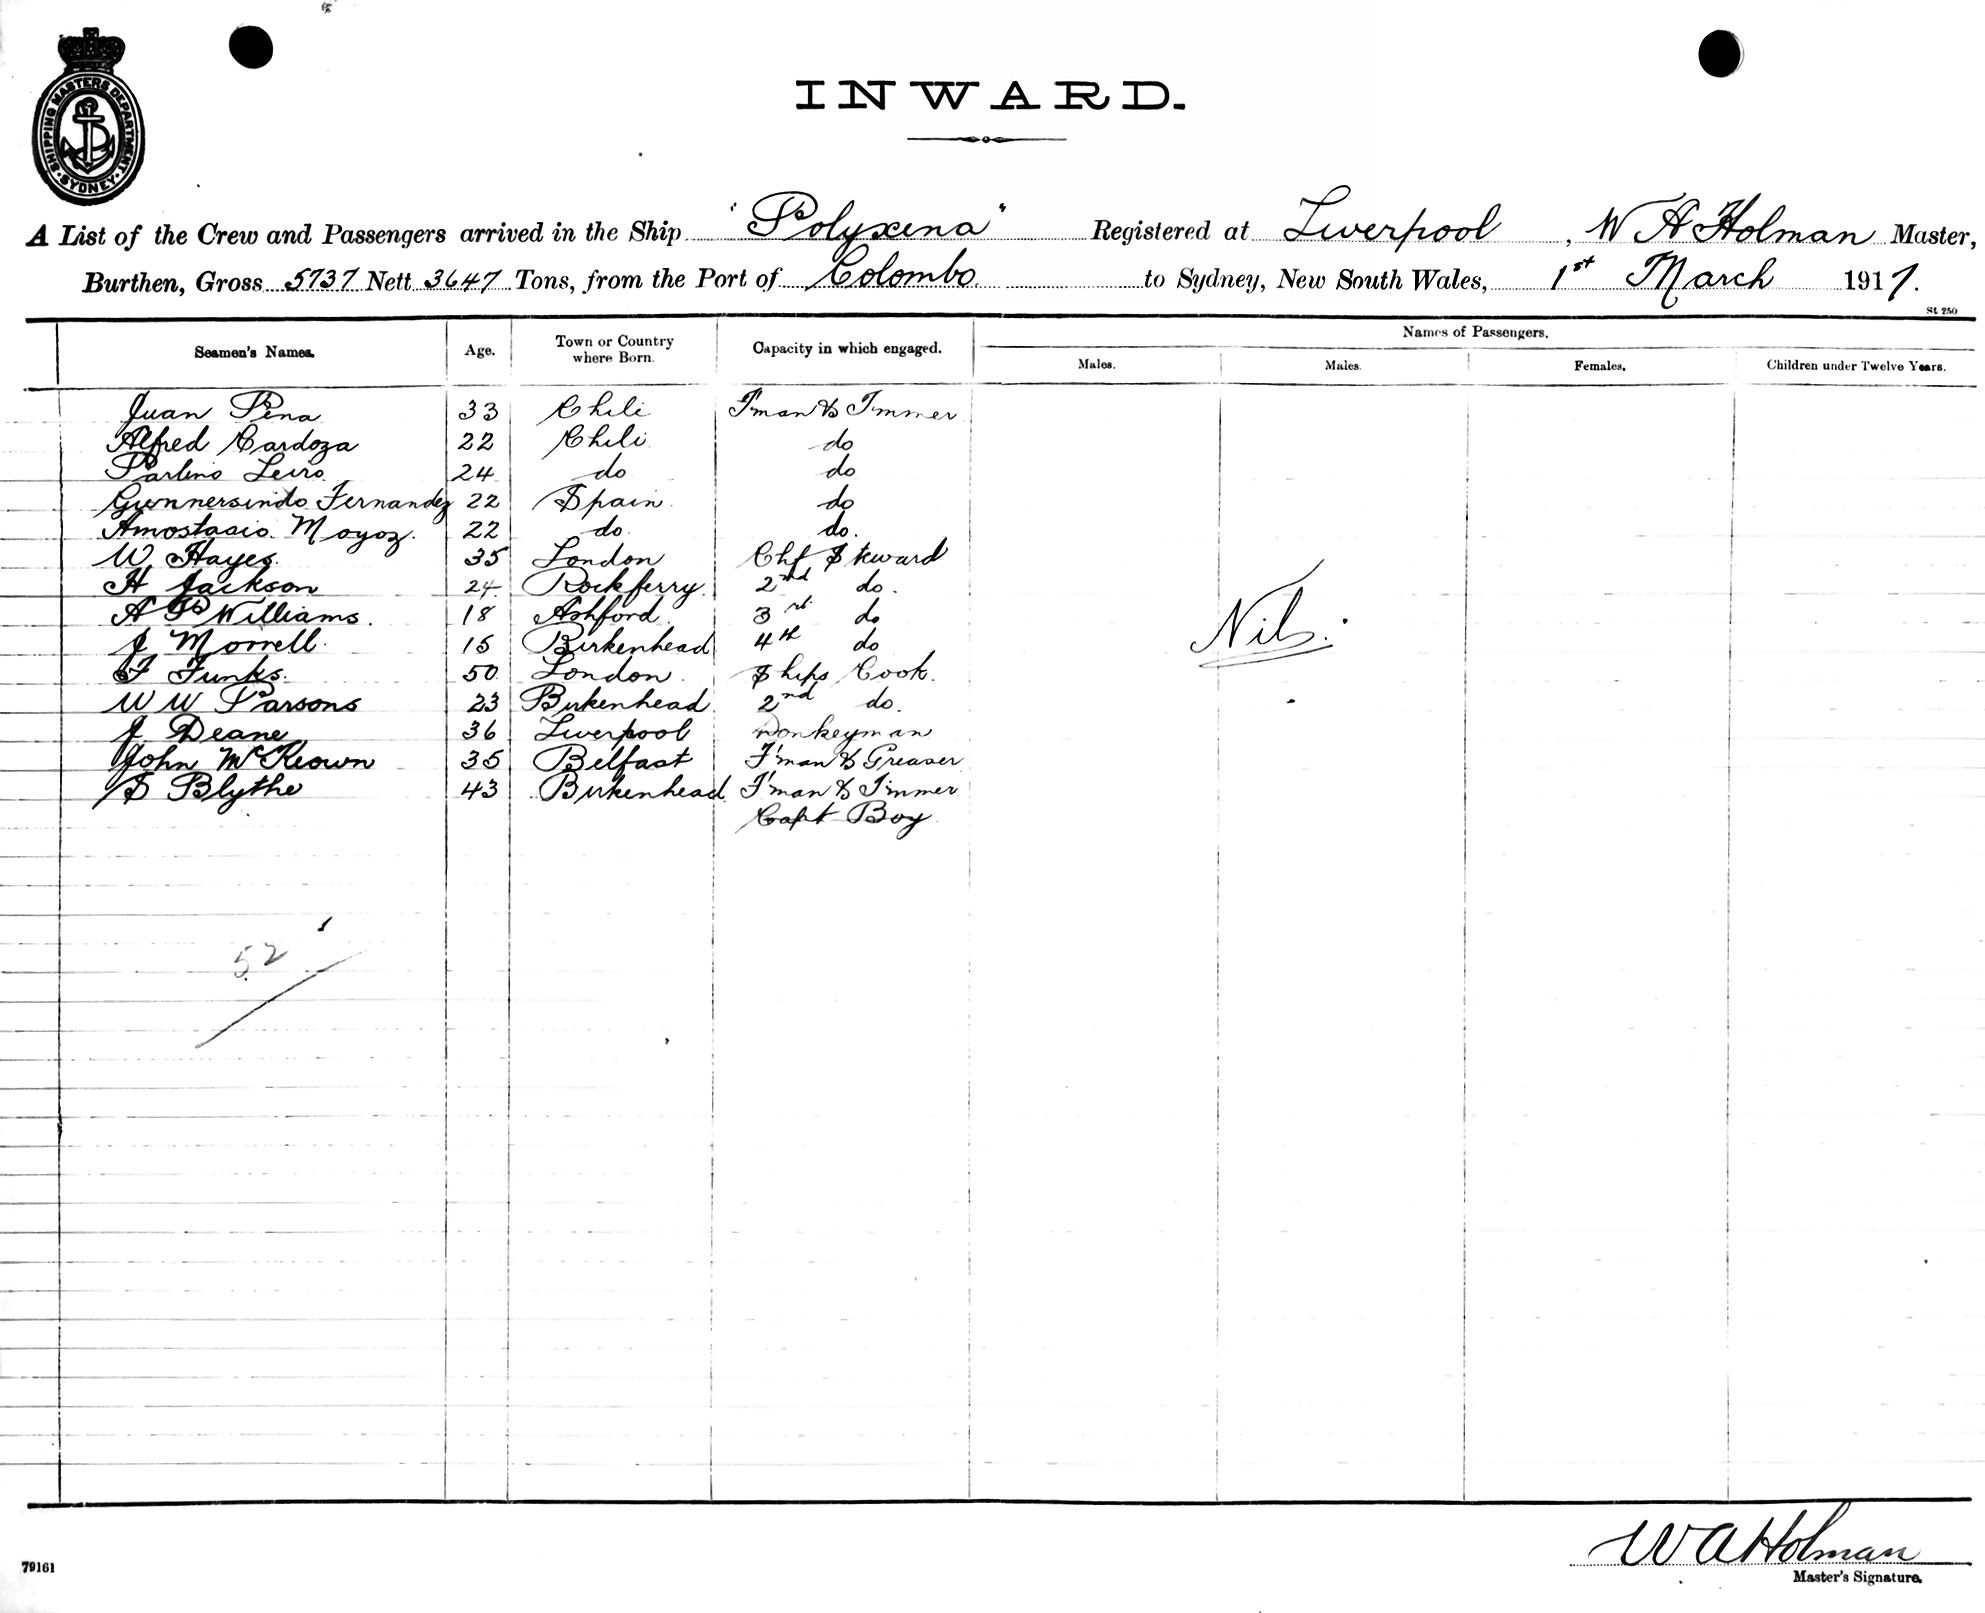 SHIPPING MASTERS DEPARTMENT
SYDNEY
INWARD.
A List of the Crew and Passengers arrived in the Ship "Polyxena" Registered at Liverpool, W A Holman Master,
Burthen, Gross 5737 Nett 3647 Tons, from the Port of Colombo. to Sydney, New South Wales, 1st March 1917.
St 250
Seamen's Names. Age. Town or Country where Born. Capacity in which engaged. Names of Passengers.
Males. Males. Females. Children under Twelve Years.
Juan Pena 33 Chili F'man & Trimmer
Alfred Cardoza 22 Chili do
Parlino Leiro 24 do do
Gunnersindo Fernandez 22 Spain do
Amostasio Moyoz. 22 do. do.
W. Hayes. 35 London Chf Steward
H Jackson 24 Rockferry. 2nd do.
A P Williams. 18 Ashford 3rd do
J Morrell. 15 Birkenhead 4th do
Nil.
F Funks. 50 London Ships Cook.
W W Parsons 23 Birkenhead 2nd do.
J. Deane 36 Liverpool Donkeyman
John McKeown 35 Belfast F'man & Greaser
S Blythe 43 Birkenhead F'man & Trimmer
Capt Boy
52
79161
W A Holman
Master's Signature.